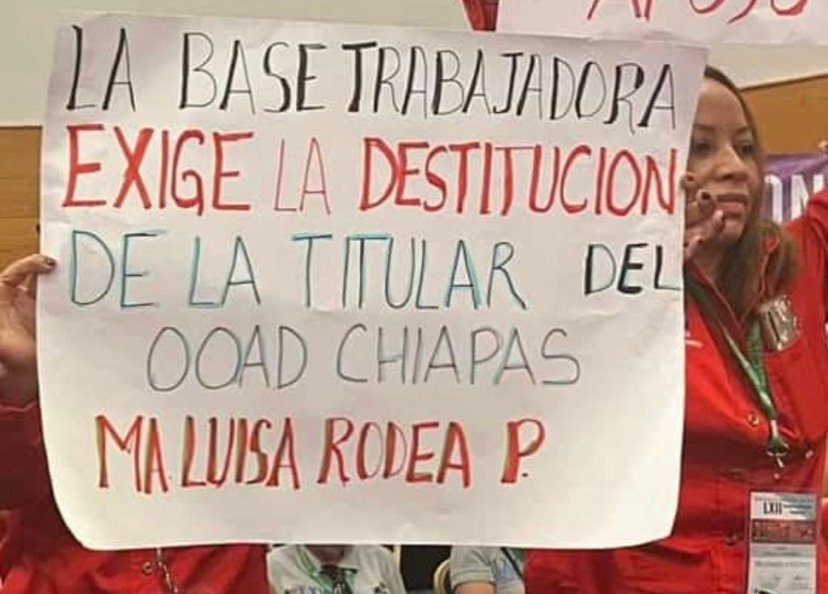 APOYO
LA BASE TRABAJADORA
EXIGE LA DESTITUCION
DE LA TITULAR DEL
OOAD CHIAPAS
MA. LUISA RODEA P.
LXII